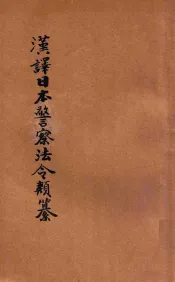 漢譯日本警察法令類纂